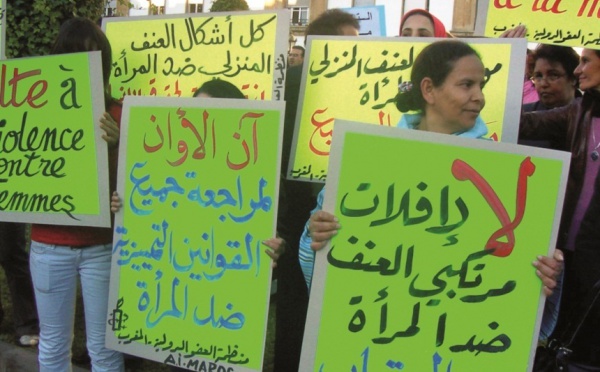 lte à
iolence
ontre
emmes
كل أشكال العنف
المنزلي ضد المرأة
العنف المنزلي
المرأة
آن الأوان
لمراجعة جميع
القوانين التمييزية
ضد المرأة
منظمة العفو الدولية - المغرب
A.I. MAROC
لا لإفلات
مرتكبي العنف
ضد المرأة
منظمة العفو الدولية - المغرب